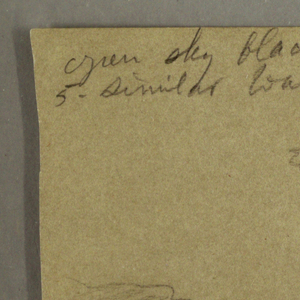 open sky blac
5 - similar wa